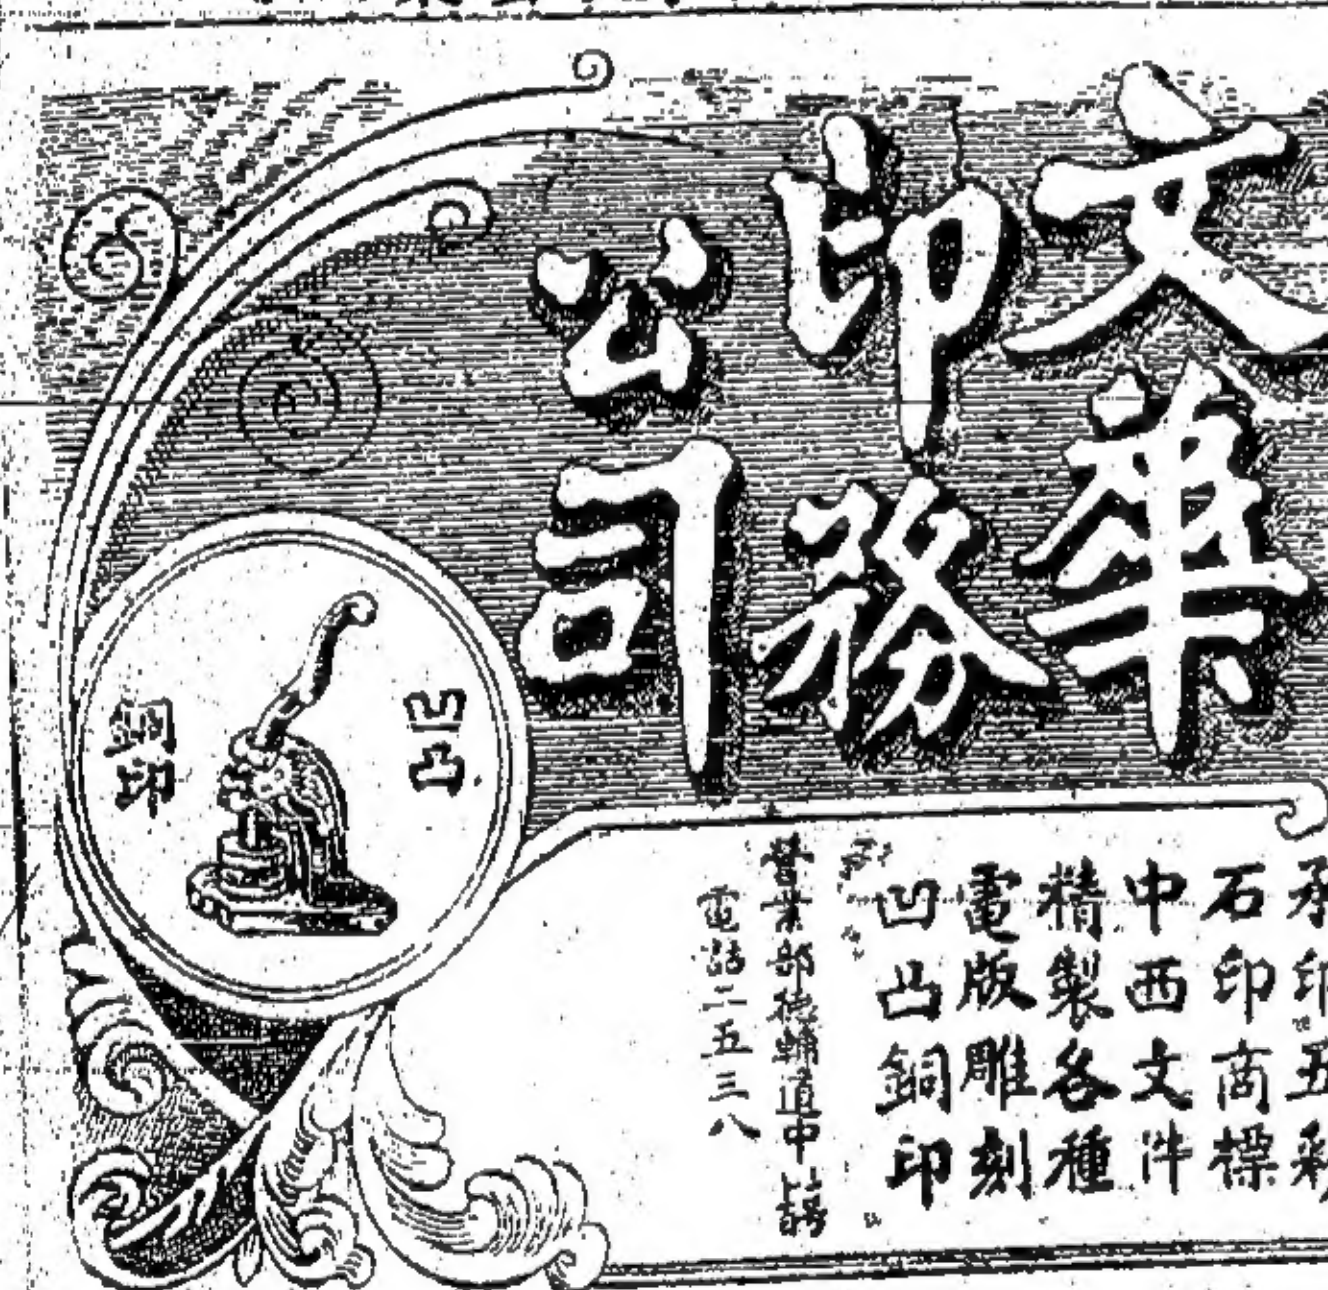 文華
印務
公司
凹凸
銅印
承印五彩
石印商標
中西文件
精製各種
電版雕刻
凹凸銅印
營業部德輔道中
電話二五三八